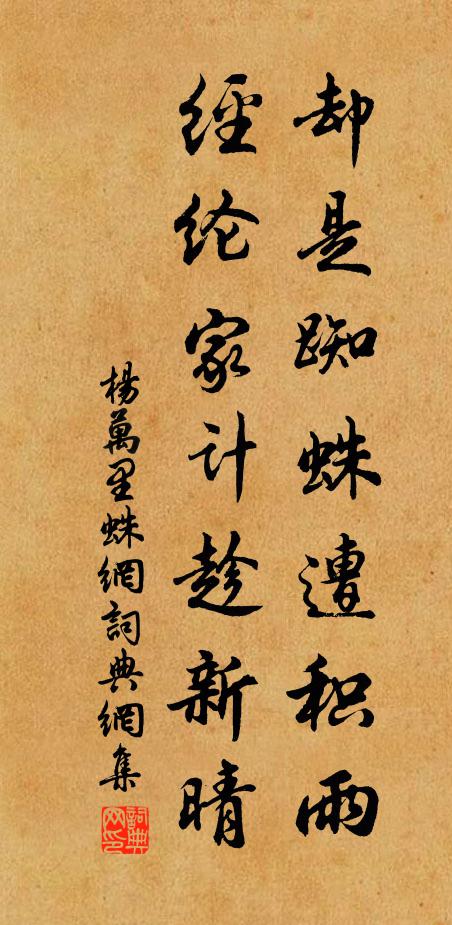 却是踟蛛遭积雨
经纶家计趁新晴
楊萬里蛛網詞典網集
詞典网印